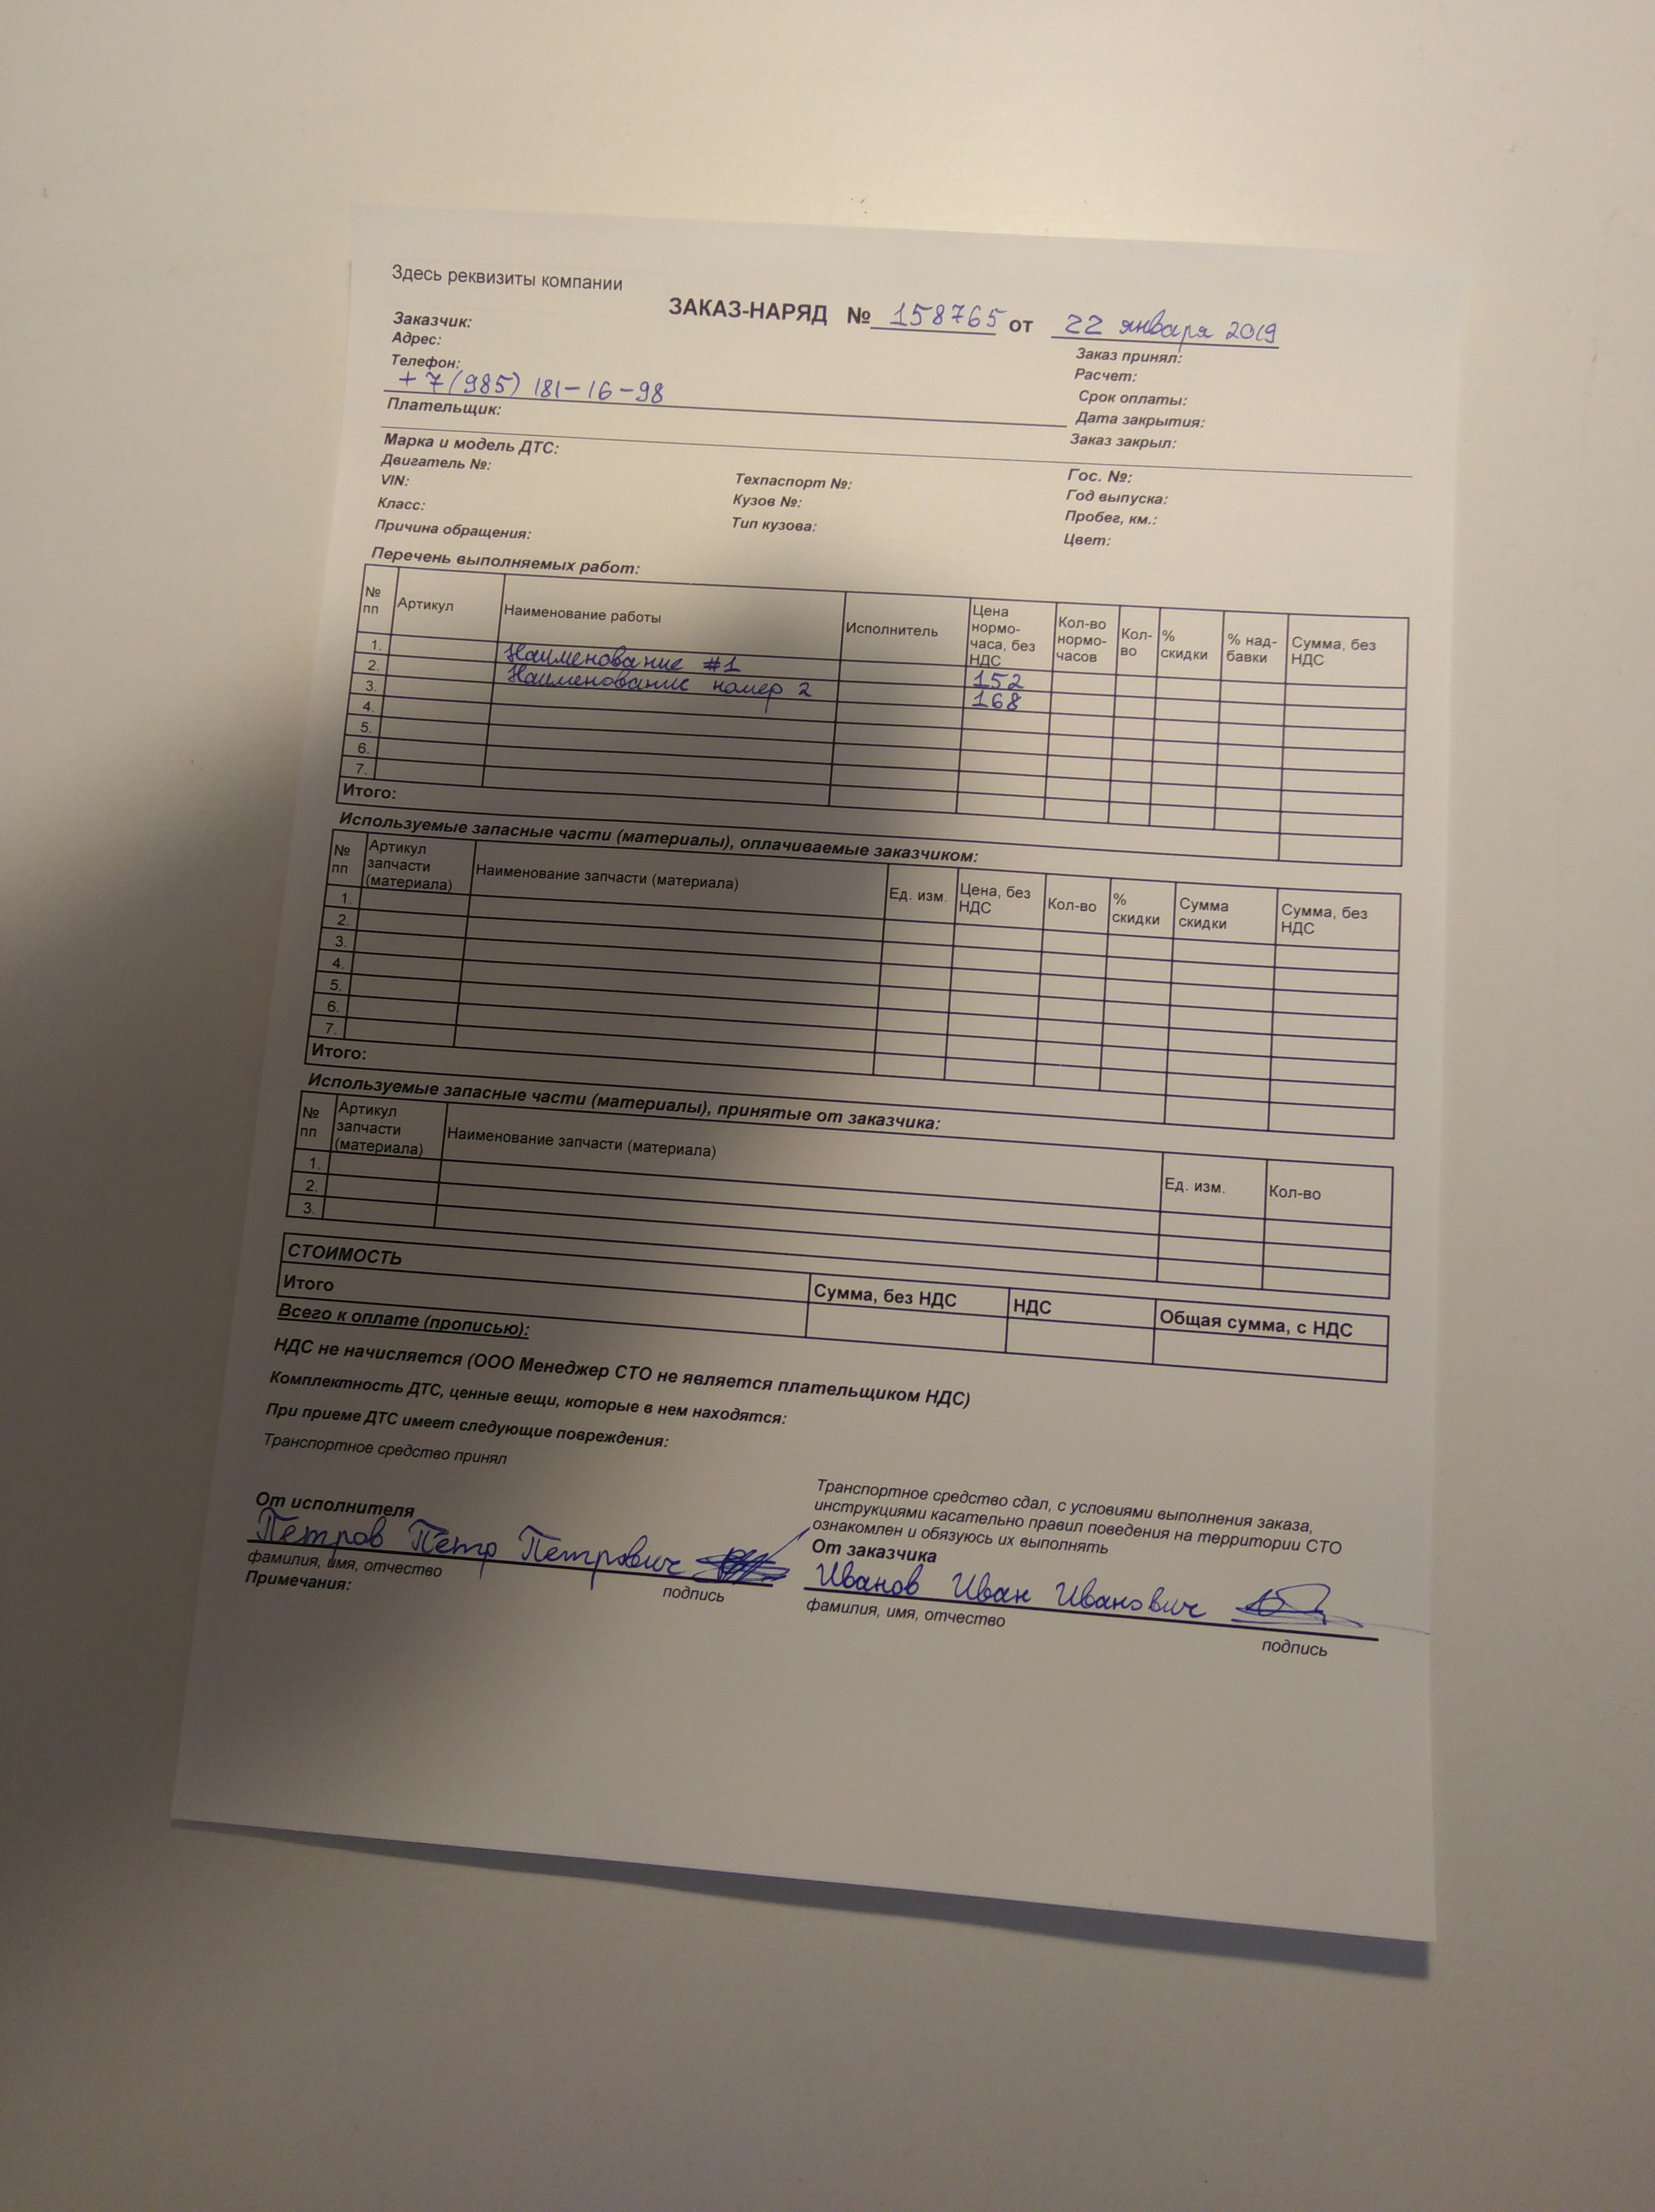 Здесь реквизиты компании
ЗАКАЗ-НАРЯД № 158765 от 22 января 2019
Заказчик:
Адрес:
Телефон:
+7(985) 181-16-98
Плательщик:
Заказ принял:
Расчет:
Срок оплаты:
Дата закрытия:
Заказ закрыл:
Марка и модель ДТС:
Двигатель №:
VIN:
Класс:
Причина обращения:
Техпаспорт №:
Кузов №:
Тип кузова:
Гос. №:
Год выпуска:
Пробег, км.:
Цвет:
Перечень выполняемых работ:
№ пп Артикул Наименование работы Исполнитель Цена нормо-часа, без НДС Кол-во нормо-часов Кол-во % скидки % над-бавки Сумма, без НДС
1. Наименование #1 152
2. Наименование номер 2 168
3.
4.
5.
6.
7.
Итого:
Используемые запасные части (материалы), оплачиваемые заказчиком:
№ пп Артикул запчасти (материала) Наименование запчасти (материала) Ед. изм. Цена, без НДС Кол-во % скидки Сумма скидки Сумма, без НДС
1.
2.
3.
4.
5.
6.
7.
Итого:
Используемые запасные части (материалы), принятые от заказчика:
№ пп Артикул запчасти (материала) Наименование запчасти (материала) Ед. изм. Кол-во
1.
2.
3.
СТОИМОСТЬ Сумма, без НДС НДС Общая сумма, с НДС
Итого
Всего к оплате (прописью):
НДС не начисляется (ООО Менеджер СТО не является плательщиком НДС)
Комплектность ДТС, ценные вещи, которые в нем находятся:
При приеме ДТС имеет следующие повреждения:
Транспортное средство принял
От исполнителя
Петров Пётр Петрович
фамилия, имя, отчество подпись
Примечания:
Транспортное средство сдал, с условиями выполнения заказа,
инструкциями касательно правил поведения на территории СТО
ознакомлен и обязуюсь их выполнять
От заказчика
Иванов Иван Иванович
фамилия, имя, отчество подпись